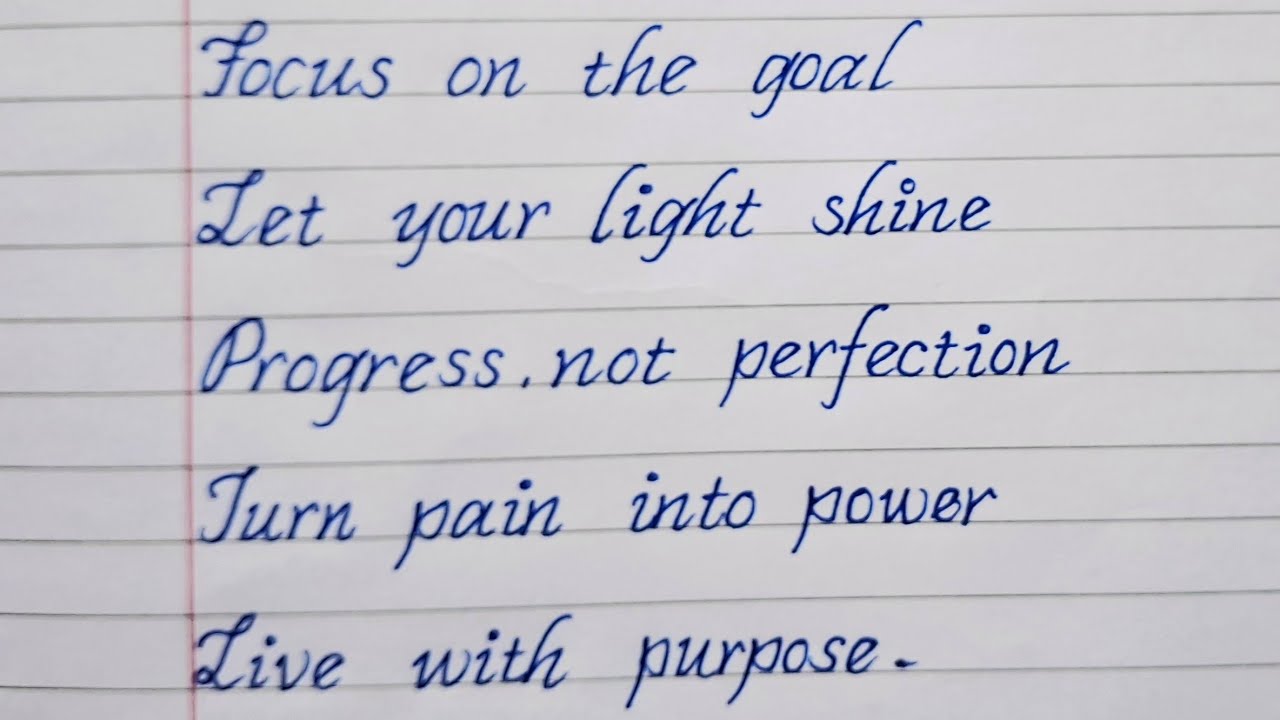 Focus on the goal
Let your light shine
Progress. not perfection
Turn pain into power
Live with purpose.